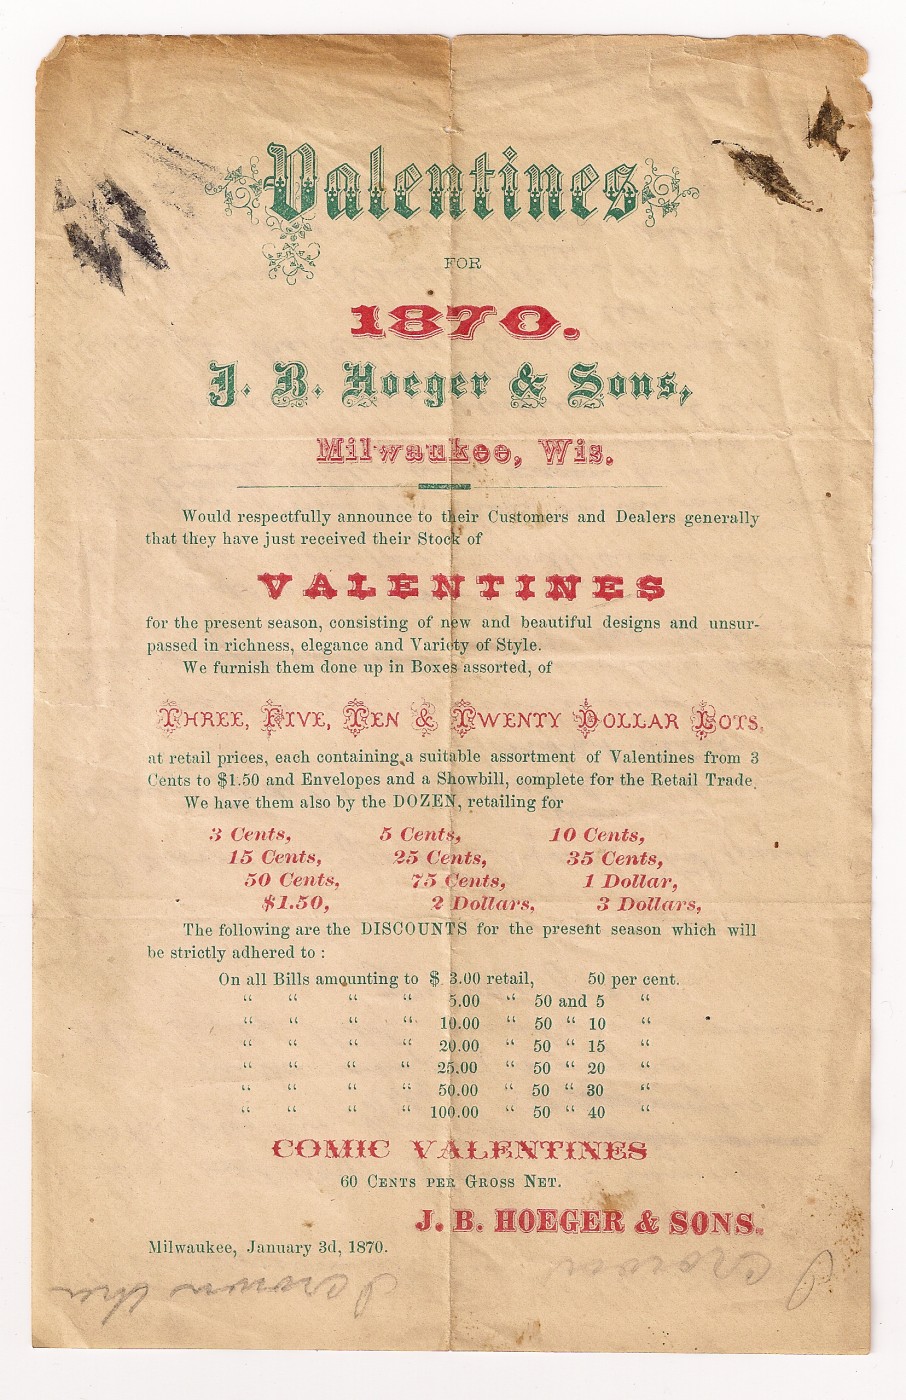 Valentines
FOR
1870.
J. B. Hoeger & Sons,
Milwaukee, Wis.
Would respectfully announce to their Customers and Dealers generally
that they have just received their Stock of
VALENTINES
for the present season, consisting of new and beautiful designs and unsur-
passed in richness, elegance and Variety of Style.
We furnish them done up in Boxes assorted, of
THREE, FIVE, TEN & TWENTY DOLLAR LOTS,
at retail prices, each containing a suitable assortment of Valentines from 3
Cents to $1.50 and Envelopes and a Showbill, complete for the Retail Trade.
We have them also by the DOZEN, retailing for
3 Cents, 5 Cents, 10 Cents,
15 Cents, 25 Cents, 35 Cents,
50 Cents, 75 Cents, 1 Dollar,
$1.50, 2 Dollars, 3 Dollars,
The following are the DISCOUNTS for the present season which will
be strictly adhered to :
On all Bills amounting to $ 3.00 retail, 50 per cent.
“ “ “ “ 5.00 “ 50 and 5 “
“ “ “ “ 10.00 “ 50 “ 10 “
“ “ “ “ 20.00 “ 50 “ 15 “
“ “ “ “ 25.00 “ 50 “ 20 “
“ “ “ “ 50.00 “ 50 “ 30 “
“ “ “ “ 100.00 “ 50 “ 40 “
COMIC VALENTINES
60 CENTS PER GROSS NET.
J. B. HOEGER & SONS.
Milwaukee, January 3d, 1870.
I crown
I crown the